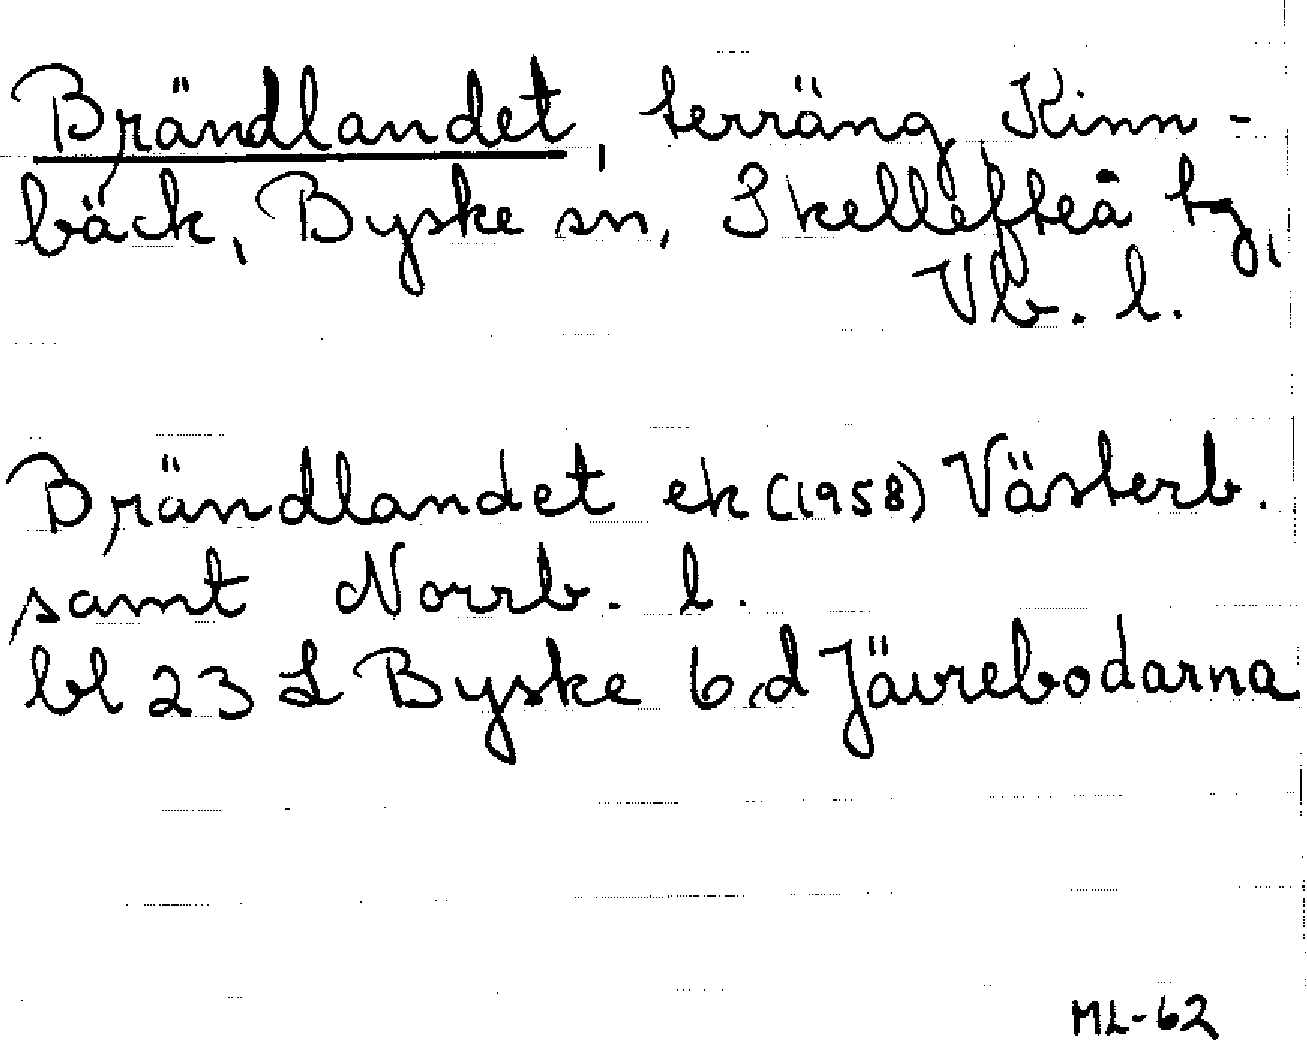 Brändlandet, terräng Kinn-
bäck, Byske sn, Skellefteå tg,
Vb. l.
Brändlandet ek (1958) Västerb.
samt Norrb. l.
bl 23 L Byske 6 d Jävrebodarna
ML-62